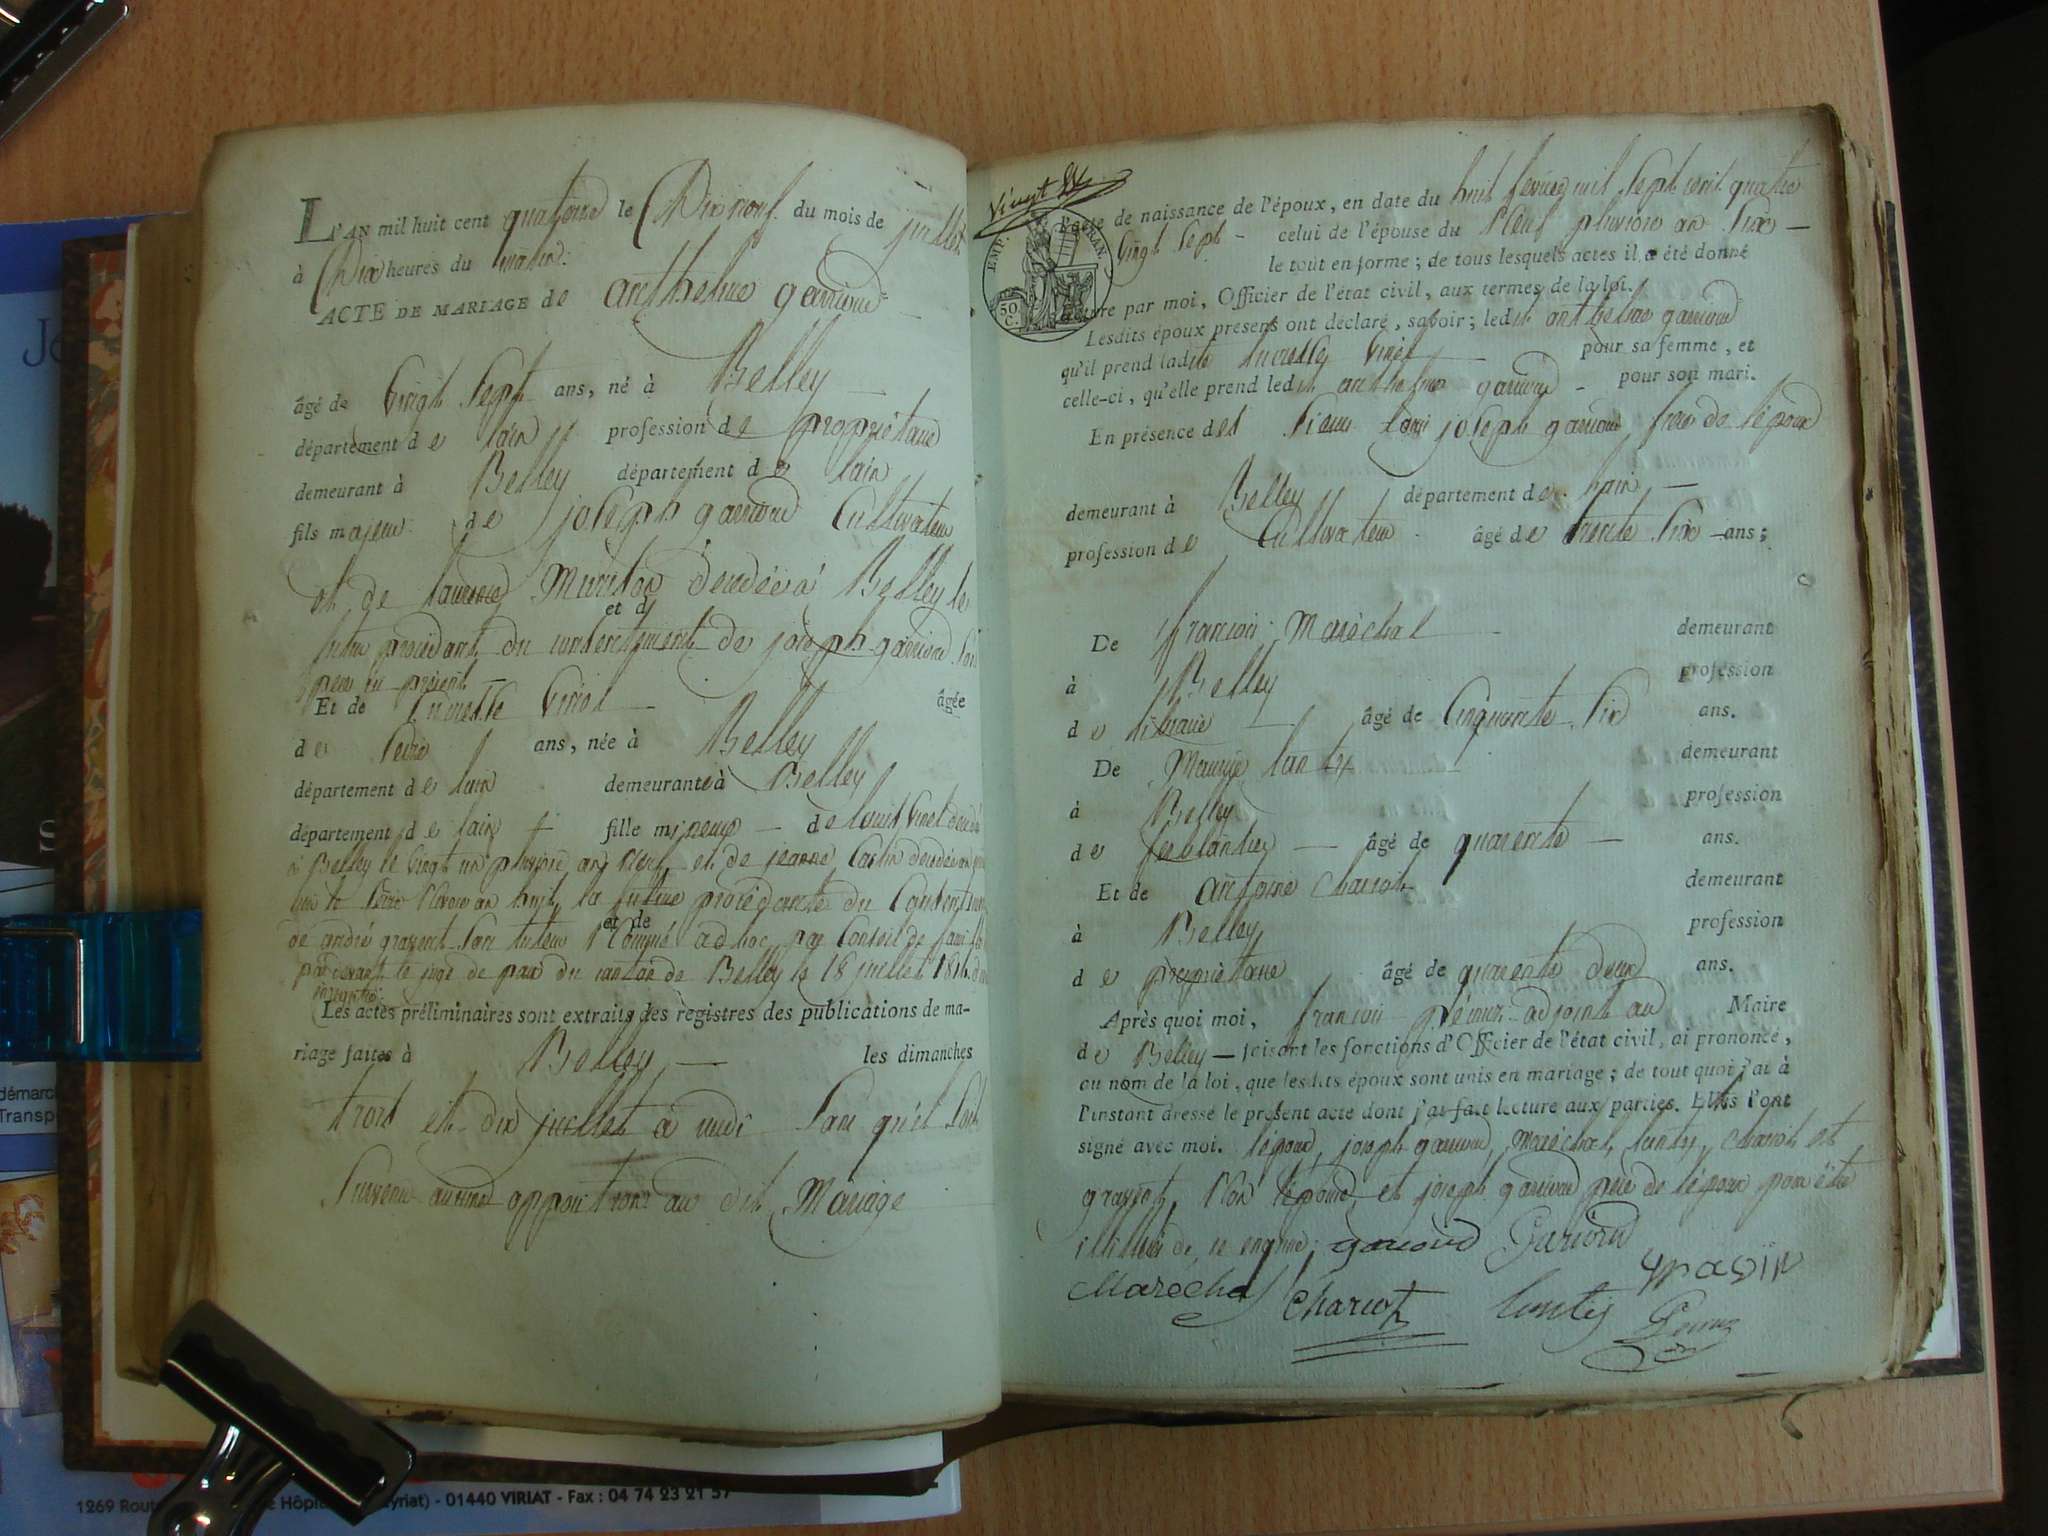 L'AN mil huit cent quatorze le Dix neuf du mois de juillet
à Dix heures du matin.
ACTE DE MARIAGE de anthelme gariod
âgé de Vingt Sept ans, né à Belley
département de lain profession de propriétaire
demeurant à Belley département de lain
fils majeur de joseph gariod Cultivateur
et d
et de laurence décédée à Belley le
futur procédant du consentement de joseph gariod son
père ici présent
Et de Lucresse Vinet âgée
de Seize ans, née à Belley
département de lain demeurante à Belley
département de lain fille mineure de louis Vinet décédé
à Belley le Vingt un pluviose an neuf et de jeanne décédée
la future procédante du Consentement
et de
de andré gravent Son tuteur Nommé ad hoc par Conseil de famille
par devant le juge de paix du canton de Belley le 18 juillet 1814
Les actes préliminaires sont extraits des registres des publications de ma-
riage faites à Belley les dimanches
trois et dix juillet à midi Sans qu'il Soit
Survenu aucune opposition au dit Mariage
Vingt Six
l'acte de naissance de l'époux, en date du huit fevrier mil Sept cent quatre
Vingt Sept - celui de l'épouse du Neuf pluviose an Six -
EMP. FRAN.
50 C.
le tout en forme ; de tous lesquels actes il a été donné
lecture par moi, Officier de l'état civil, aux termes de la loi.
Lesdits époux presens ont déclaré, savoir ; ledit anthelme gariod
qu'il prend ladite lucresse Vinet pour sa femme, et
celle-ci, qu'elle prend ledit anthelme gariod - pour son mari.
En présence des Sieur joseph gariod frère de l'époux
demeurant à Belley département de lain -
profession de Cultivateur âgé de trente Six - ans ;
De françois Maréchal demeurant
à Belley profession
de libraire âgé de Cinquante Six ans.
De Maurice lanty demeurant
à Belley profession
de ferblantier - âgé de quarente - ans.
Et de antoine Chariot demeurant
à Belley profession
de propriétaire âgé de quarente deux ans.
Après quoi moi, françois adjoint au Maire
de Belley - faisant les fonctions d'Officier de l'état civil, ai prononcé,
au nom de la loi, que lesdits époux sont unis en mariage ; de tout quoi j'ai à
l'instant dressé le présent acte dont j'ai fait lecture aux parties. Elles l'ont
signé avec moi. l'époux, joseph gariod, Maréchal, lanty, Chariot et
gravent, Non l'épouse et joseph gariod père de l'époux pour être
illitéré de ce enquis. gariod Gariod
Maréchal Chariot lanty
démarc
Transp
1269 Route Hôpit yriat) - 01440 VIRIAT - Fax : 04 74 23 21 57